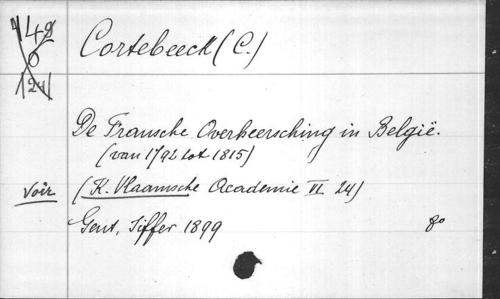 148
0
124
Cortebeeck (C.)
De Fransche Overheersching in België.
(van 1792 tot 1815)
voir (K. Vlaamsche Academie VI 24)
Gent, Siffer 1899 8o